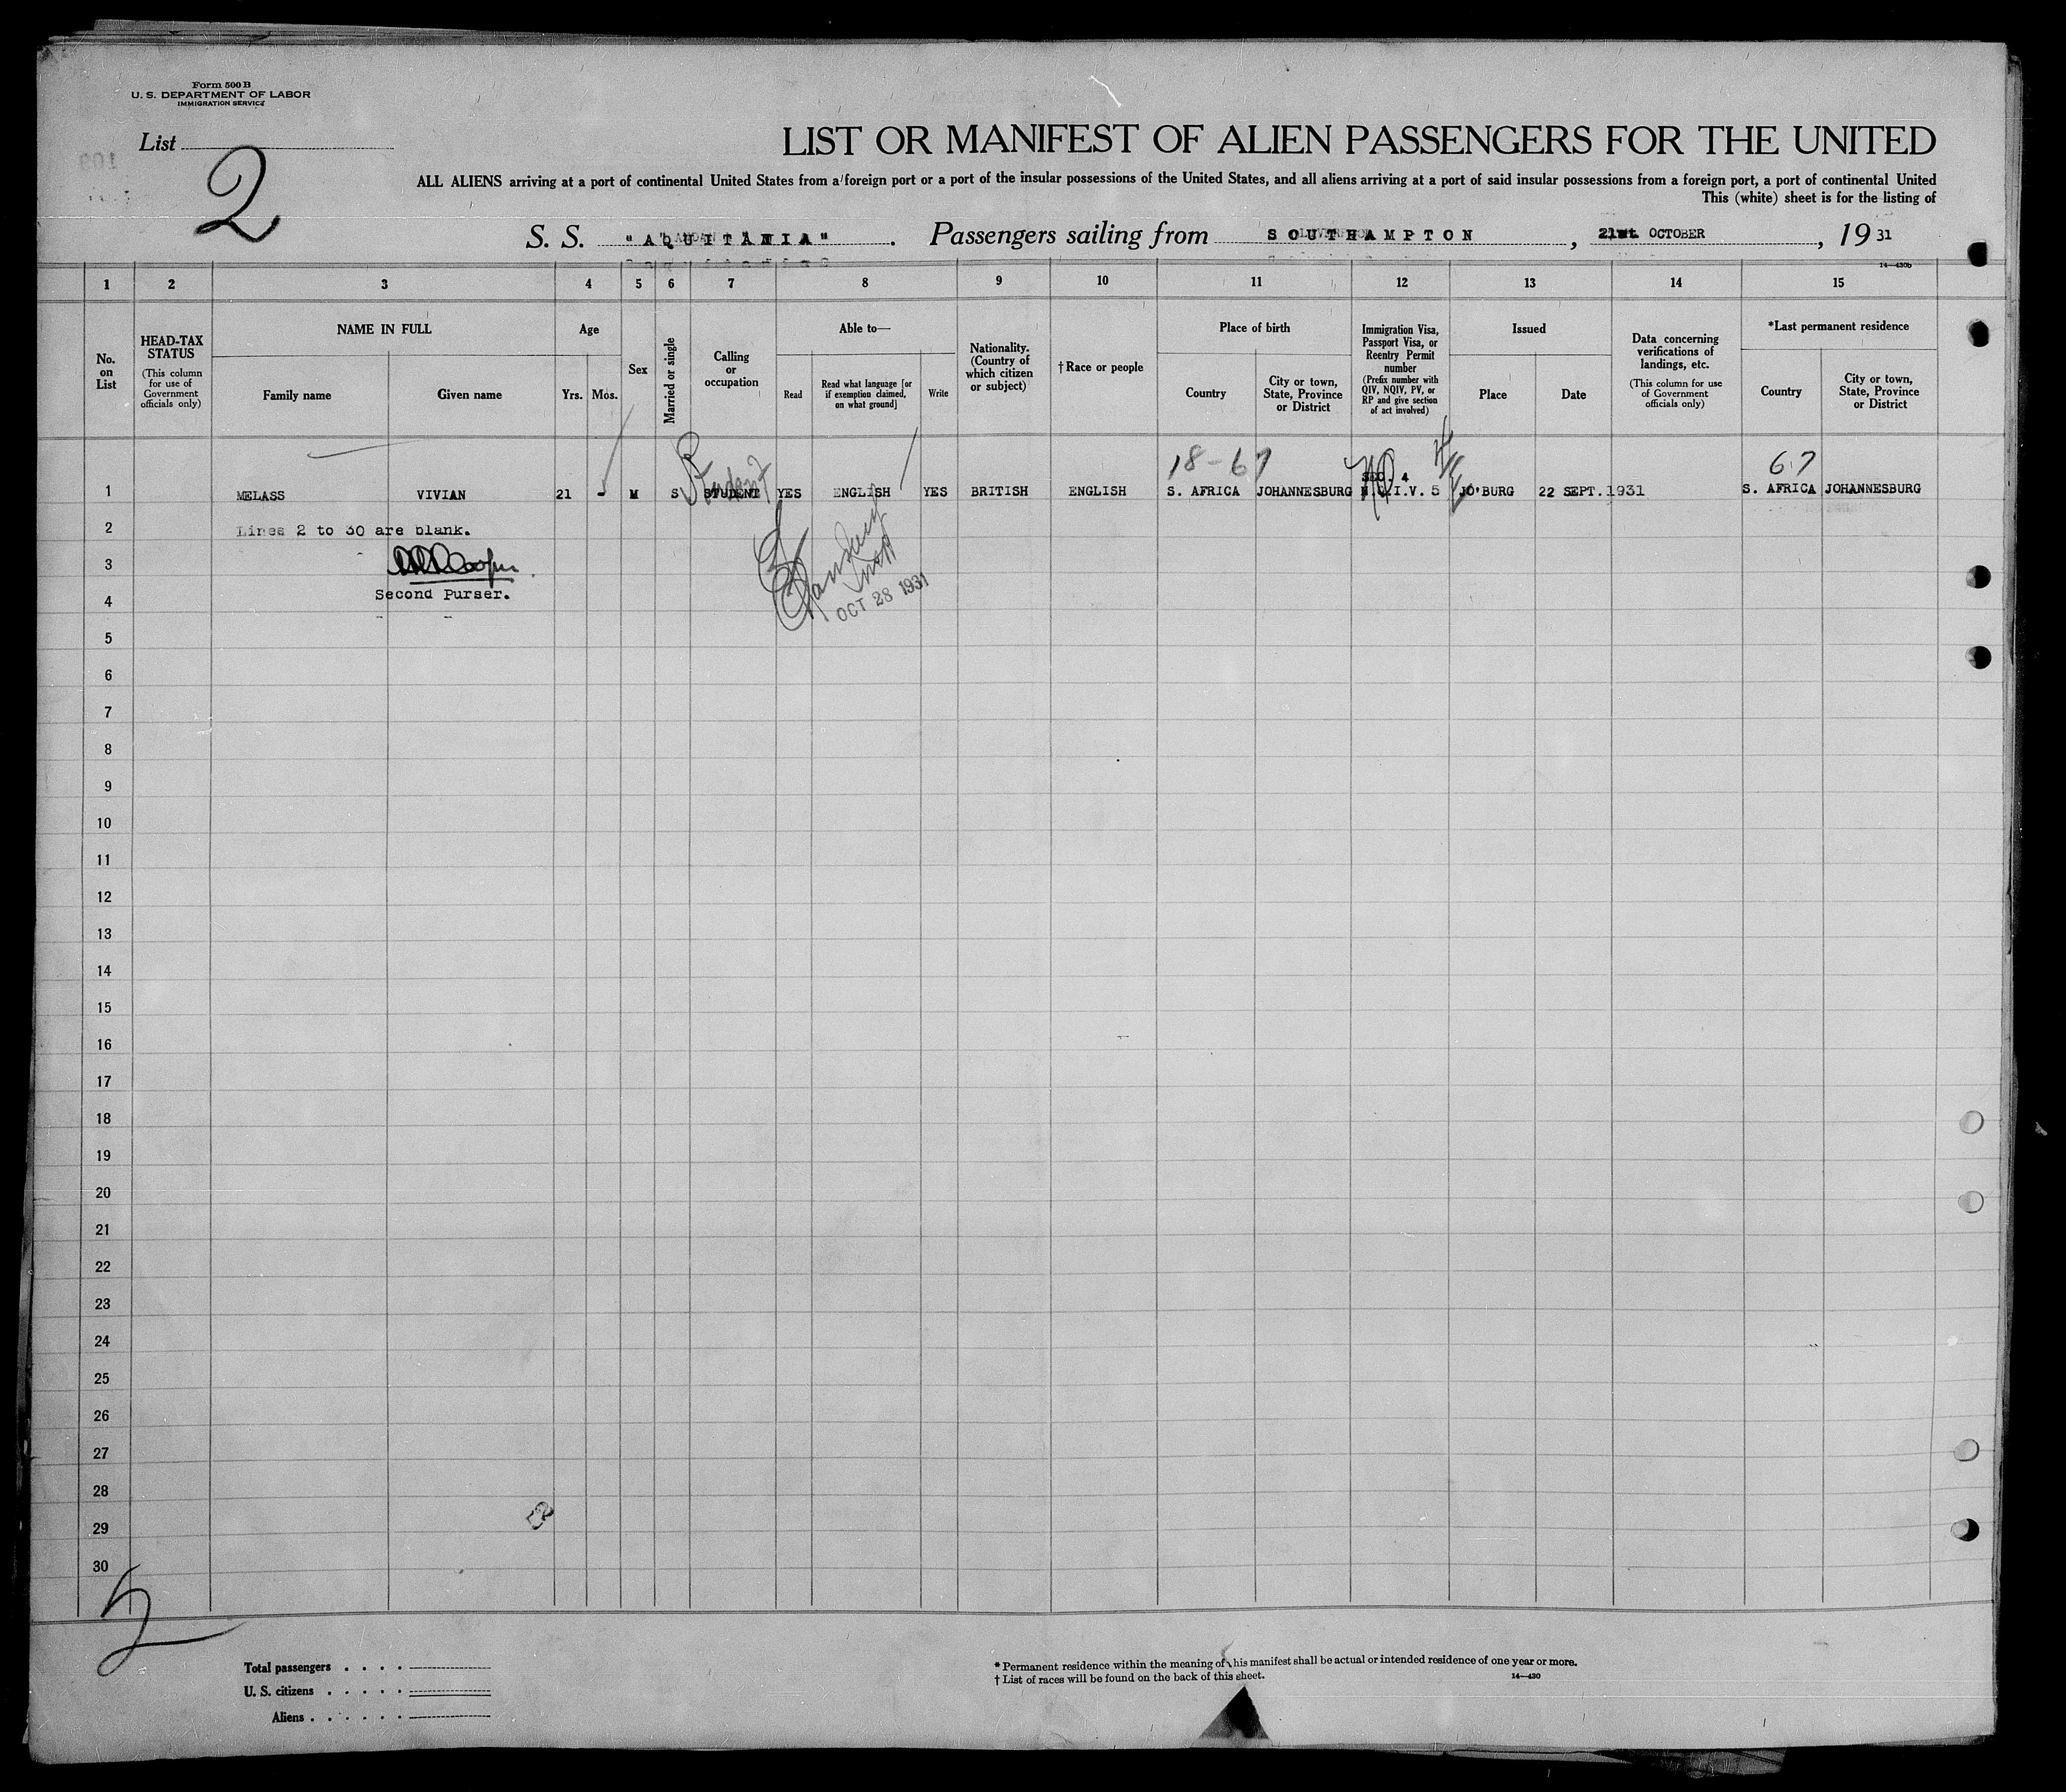 Form 500 B
U. S. DEPARTMENT OF LABOR
IMMIGRATION SERVICE
List
2
LIST OR MANIFEST OF ALIEN PASSENGERS FOR THE UNITED
ALL ALIENS arriving at a port of continental United States from a foreign port or a port of the insular possessions of the United States, and all aliens arriving at a port of said insular possessions from a foreign port, a port of continental United
This (white) sheet is for the listing of
S. S. "AQUITANIA". Passengers sailing from SOUTHAMPTON, 21st. OCTOBER, 19 31
14—430b
1 2 3 4 5 6 7 8 9 10 11 12 13 14 15
No. on List
HEAD-TAX STATUS
(This column for use of Government officials only)
NAME IN FULL
Family name
Given name
Age
Yrs.
Mos.
Sex
Married or single
Calling or occupation
Able to—
Read
Read what language [or if exemption claimed, on what ground]
Write
Nationality. (Country of which citizen or subject)
†Race or people
Place of birth
Country
City or town, State, Province or District
Immigration Visa, Passport Visa, or Reentry Permit number
(Prefix number with QIV, NQIV, PV, or RP and give section of act involved)
Issued
Place
Date
Data concerning verifications of landings, etc.
(This column for use of Government officials only)
*Last permanent residence
Country
City or town, State, Province or District
Student
18-67
67
SEC. 4
1 MELASS VIVIAN 21 - M S STUDENT YES ENGLISH YES BRITISH ENGLISH S. AFRICA JOHANNESBURG N.Q.I.V. 5 JO'BURG 22 SEPT. 1931 S. AFRICA JOHANNESBURG
2 Lines 2 to 30 are blank.
3 Cooper
4 Second Purser.
OCT 28 1931
5
6
7
8
9
10
11
12
13
14
15
16
17
18
19
20
21
22
23
24
25
26
27
28
29
30
2
Total passengers . . . .
U. S. citizens . . . . .
Aliens . . . . . .
* Permanent residence within the meaning of this manifest shall be actual or intended residence of one year or more.
† List of races will be found on the back of this sheet.
14—430